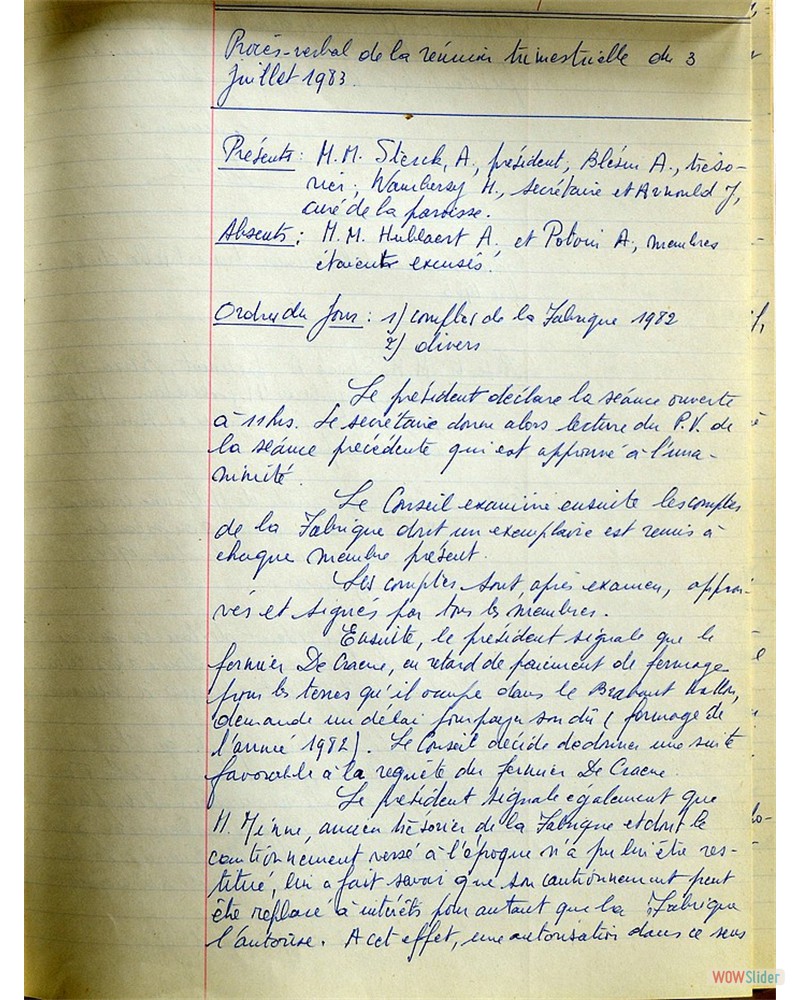 Procès-verbal de la réunion trimestrielle du 3
Juillet 1983.
Présents : M.M. Sterck, A., président, Blésin A., tréso-
rier, Wambersy H., secrétaire et Arnould J,
curé de la paroisse.
Absents : M.M. Hublaert A. et Potvin A., membres
étaient excusés.
Ordre du Jour : 1) comptes de la Fabrique 1982
2) divers
Le président déclare la séance ouverte
à 11hs. Le secrétaire donne alors lecture du P.V. de
la séance précédente qui est approuvé à l'una-
nimité.
Le Conseil examine ensuite les comptes
de la Fabrique dont un exemplaire est remis à
chaque membre présent.
Les comptes sont, après examen, approu-
vés et signés par tous les membres.
Ensuite, le président signale que le
fermier De Craene, en retard de paiement de fermage
pour les terres qu'il occupe dans le Brabant Wallon,
demande un délai pour payer son dû ( fermage de
l'année 1982). Le Conseil décide de donner une suite
favorable à la requête du fermier De Craene.
Le président signale également que
M. Minne, ancien trésorier de la Fabrique et dont le
cautionnement versé à l'époque n'a pu lui être res-
titué, lui a fait savoir que son cautionnement peut
être replacé à intérêts pour autant que la Fabrique
l'autorise. A cet effet, une autorisation dans ce sens
WOWSlider